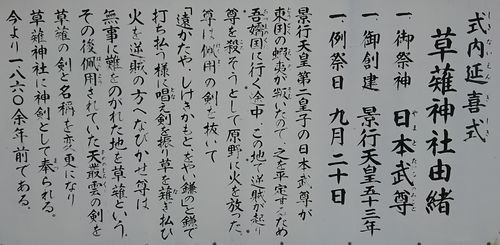 式内延喜式
草薙神社由緒
一、御祭神 日本武尊
一、御創建 景行天皇五十三年
一、例祭日 九月二十日
景行天皇第二皇子の日本武尊が
東国の蝦夷が叛いたので之を平定するため
吾嬬国に行く途中、この地で逆賊が起り
尊を殺そうとして原野に火を放った。
尊は佩用の剣を抜いて
「遠かたや、しげきかもと、をや鎌の」と鎌で
打ち払う様に唱え剣を振り草を薙ぎ払ひ
火を逆賊の方へなびかせ尊は
無事に難をのがれた地を草薙という。
その後佩用されていた天叢雲の剣を
草薙の剣と名称を変更になり
草薙神社に神剣として奉られる。
今より一八六〇余年前である。